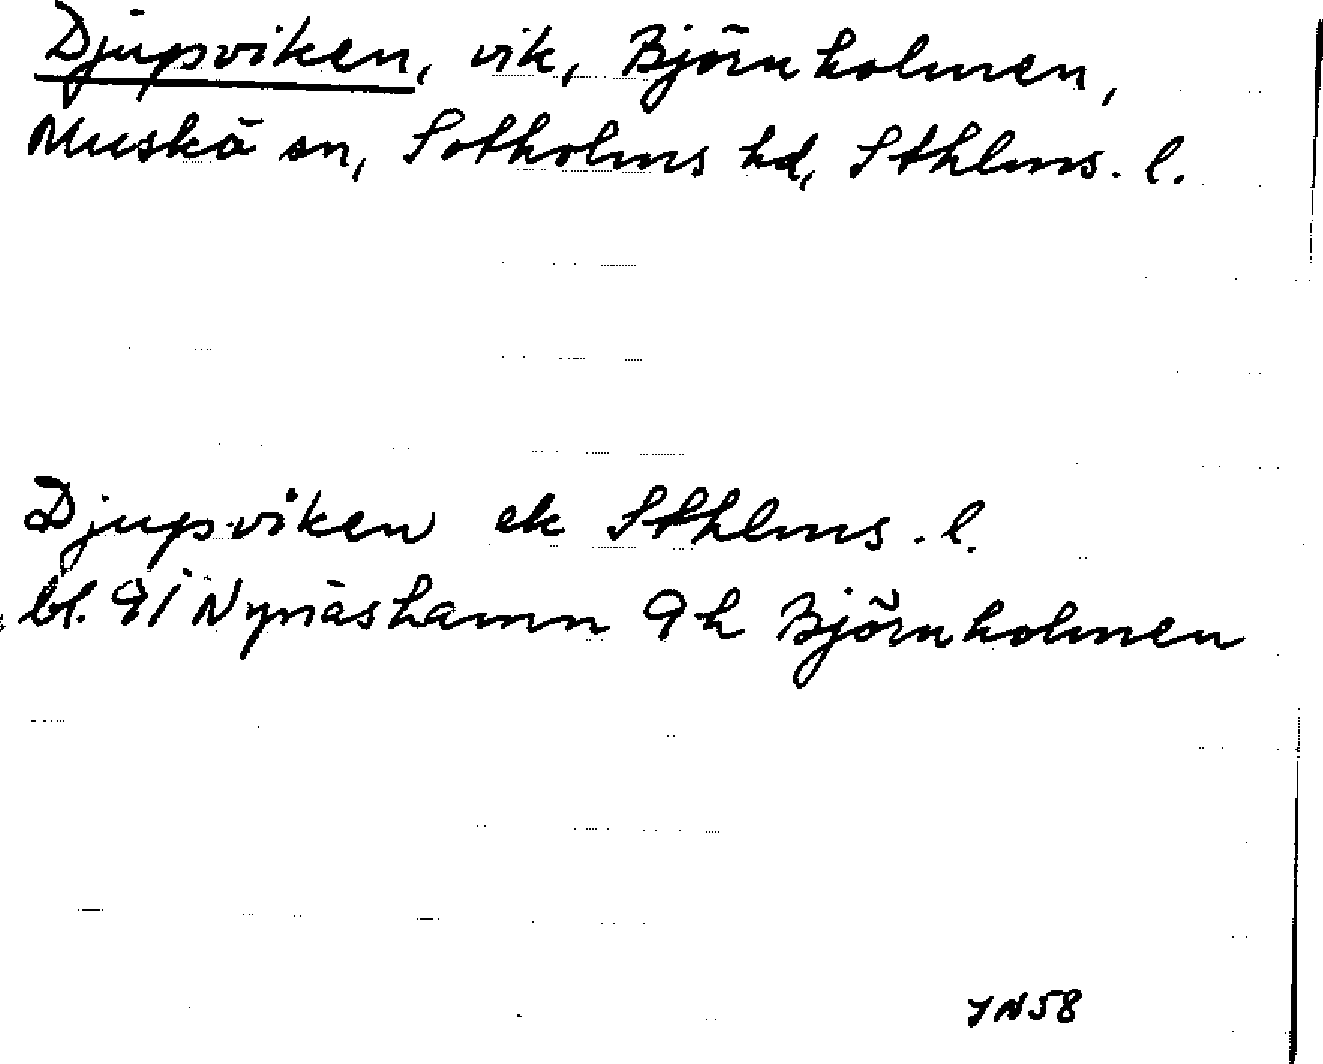 Djupviken, vik, Björnholmen,
Muskö sn, Sotholms hd, Sthlms. l.
Djupviken ek Sthlms. l.
bl. 91 Nynäshamn 9h Björnholmen
YN58